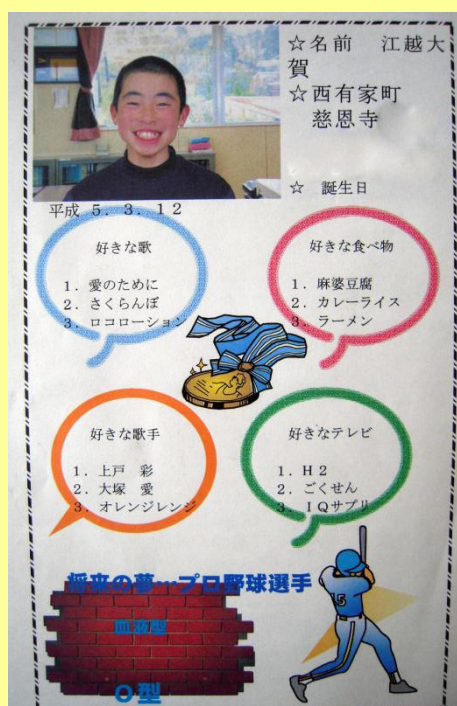 ☆名前　江越大
賀
☆西有家町
慈恩寺
☆　誕生日
平成 ５．３．１２
好きな歌
１．愛のために
２．さくらんぼ
３．ロコローション
好きな食べ物
１．麻婆豆腐
２．カレーライス
３．ラーメン
好きな歌手
１．上戸　彩
２．大塚　愛
３．オレンジレンジ
好きなテレビ
１．Ｈ２
２．ごくせん
３．ＩＱサプリ
将来の夢…プロ野球選手
15
血液型
Ｏ型